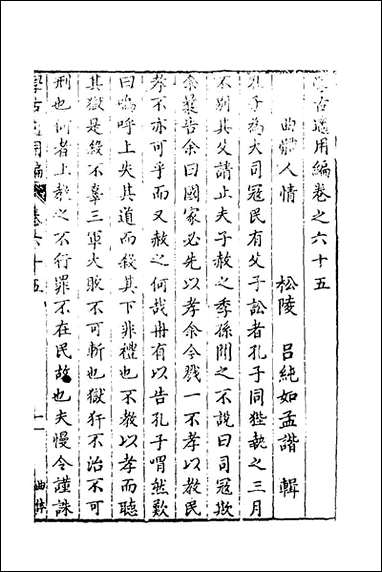 學古適用編卷之六十五
曲體人情
松陵 呂純如孟諧 輯
孔子為大司寇民有父子訟者孔子同狴執之三月
不別其父請止夫子赦之季孫聞之不說曰司寇欺
余曩告余曰國家必先以孝余今戮一不孝以教民
孝不亦可乎而又赦之何哉冉有以告孔子喟然歎
曰嗚呼上失其道而殺其下非禮也不教以孝而聽
其獄是殺不辜三軍大敗不可斬也獄犴不治不可
刑也何者上教之不行罪不在民故也夫慢令謹誅
學古適用編
卷六十五
一
曲體